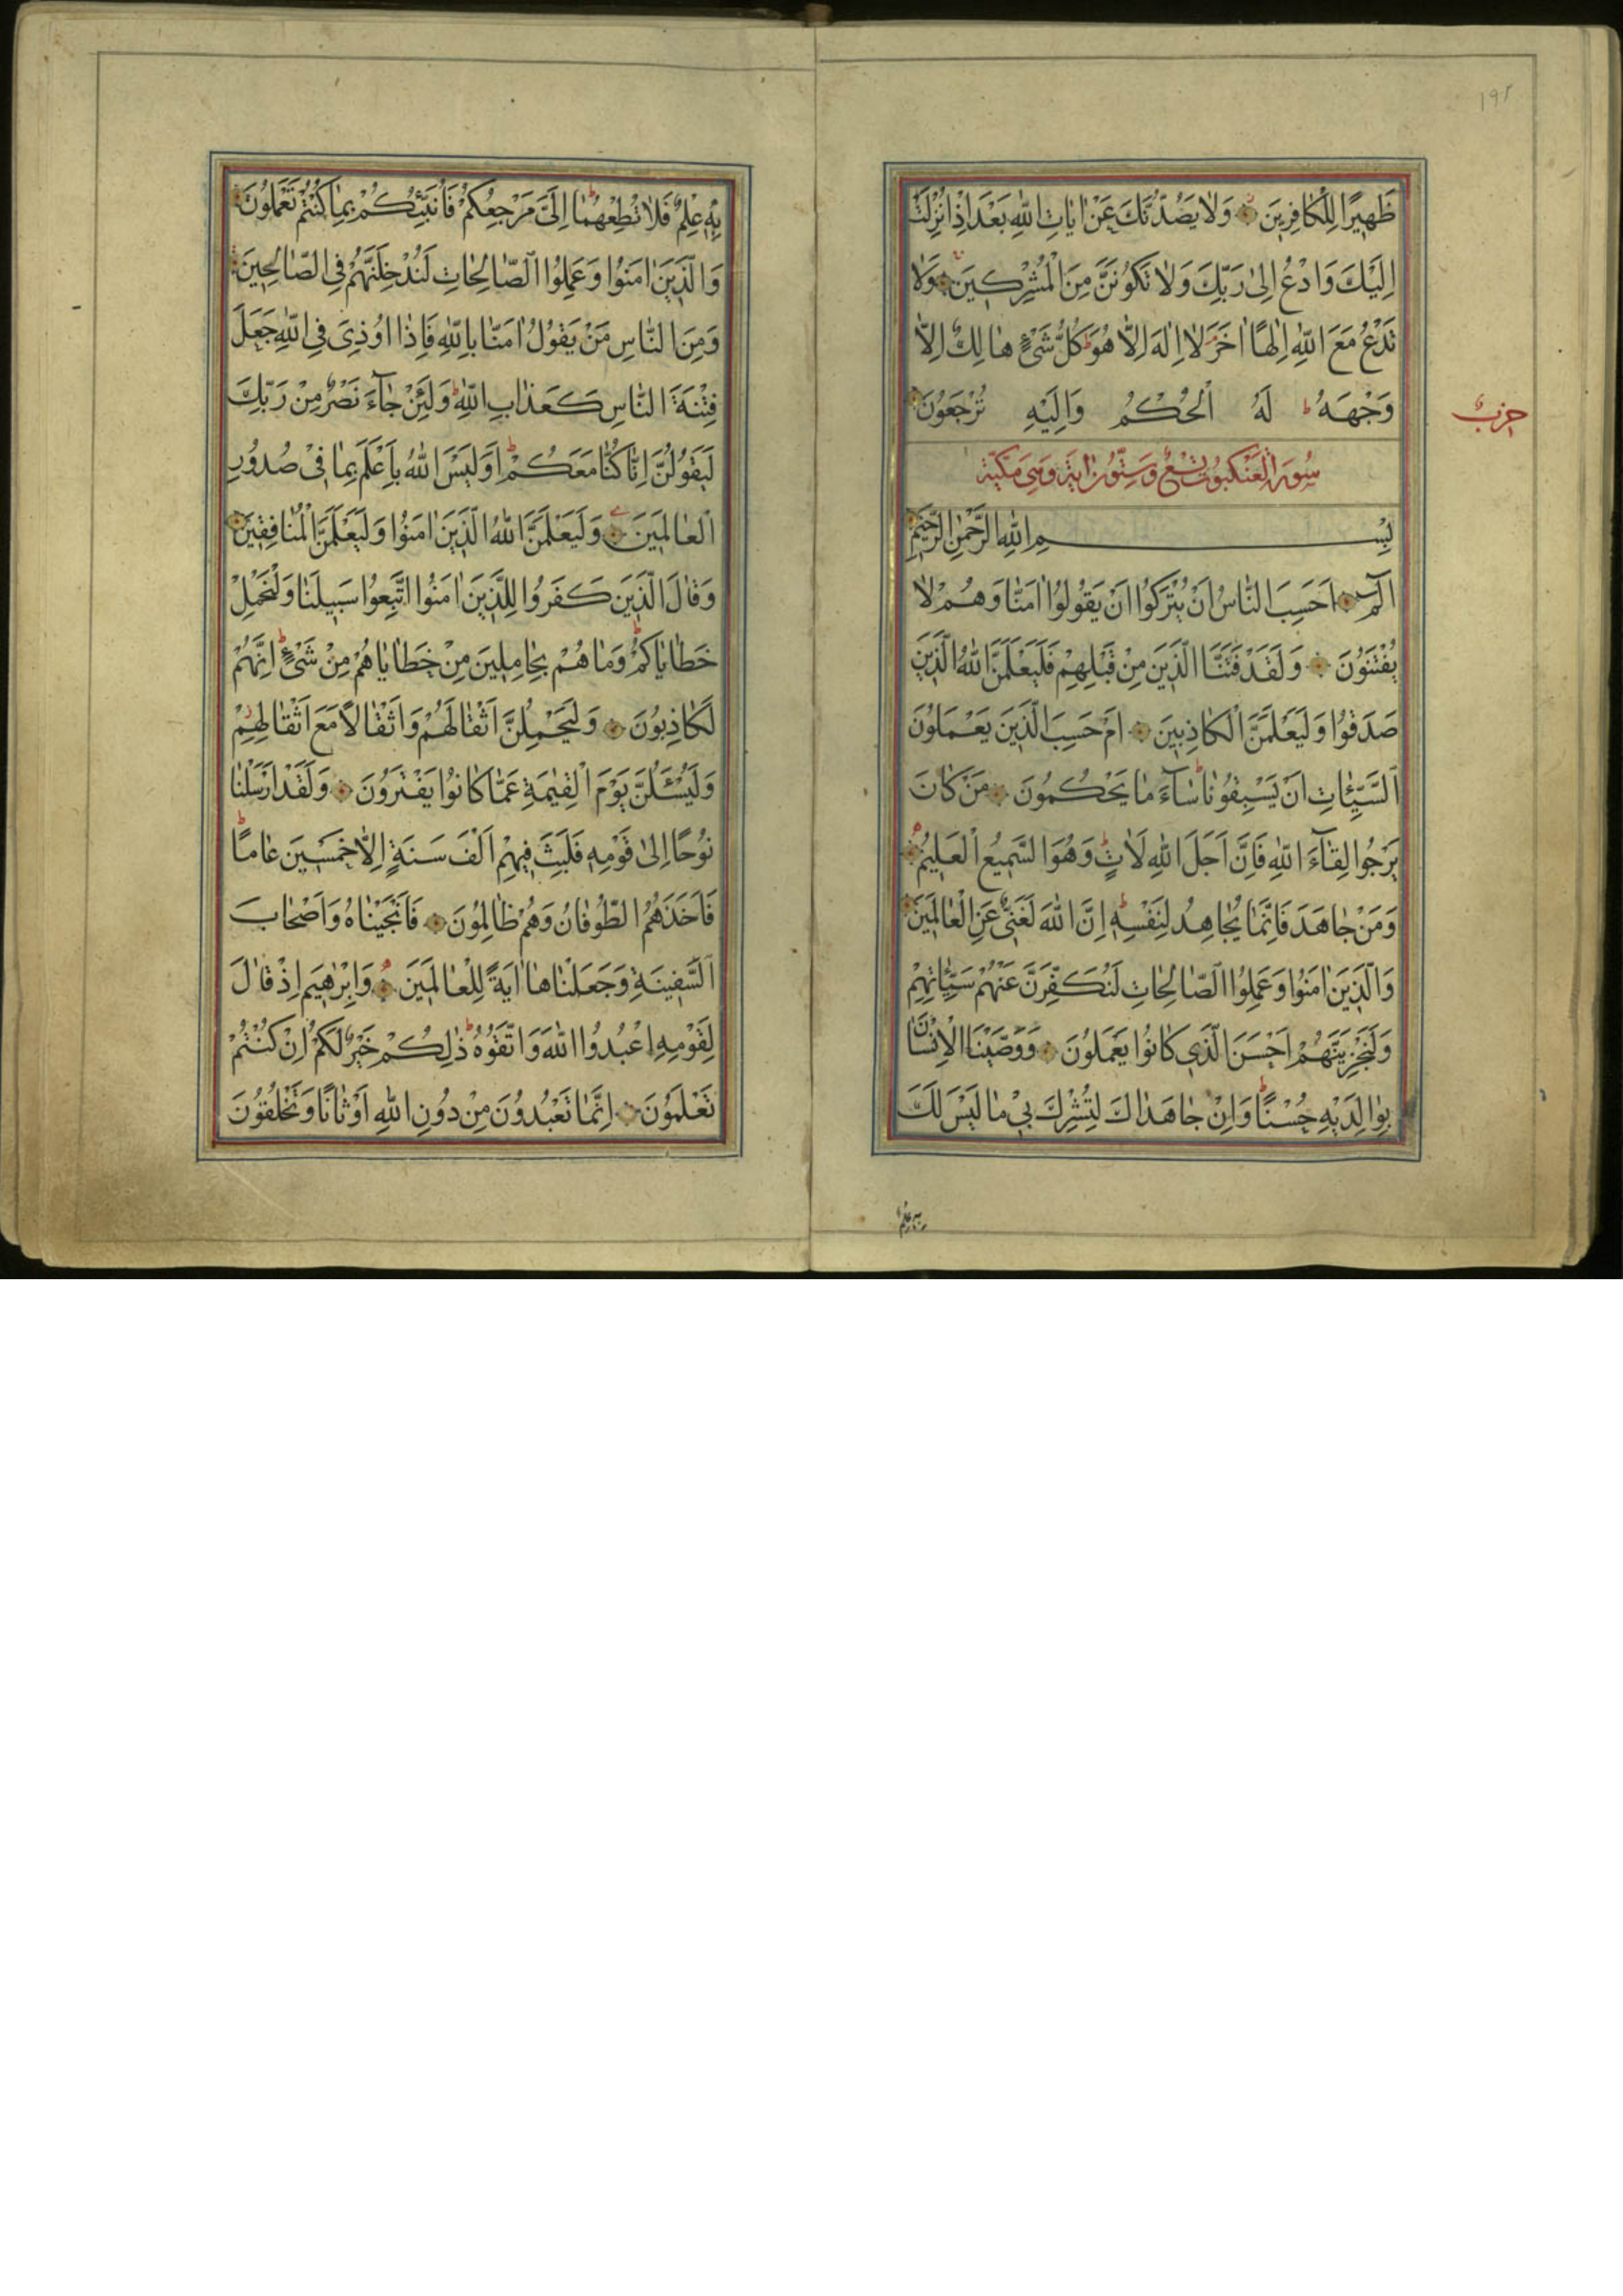 ١٩٢
ظَهيرًا لِلْكَافِرينَ وَلَا يَصُدُّنَّكَ عَنْ اٰيَاتِ اللّٰهِ بَعْدَ اِذْ اُنْزِلَتْ
اِلَيْكَ وَادْعُ اِلٰى رَبِّكَ وَلَا تَكُونَنَّ مِنَ الْمُشْرِكينَ وَلَا
تَدْعُ مَعَ اللّٰهِ اِلٰهًا اٰخَرَ لَا اِلٰهَ اِلَّا هُوَ كُلُّ شَيْءٍ هَالِكٌ اِلَّا
وَجْهَهُ ط لَهُ الْحُكْمُ وَاِلَيْهِ تُرْجَعُونَ
حزب
سُورَةُ الْعَنْكَبُوتِ تِسْعٌ وَسِتُّونَ اٰيَةً وَهِيَ مَكِّيَّة
بِسْمِ اللّٰهِ الرَّحْمٰنِ الرَّحيمِ
الٓمٓ اَحَسِبَ النَّاسُ اَنْ يُتْرَكُوا اَنْ يَقُولُوا اٰمَنَّا وَهُمْ لَا
يُفْتَنُونَ وَلَقَدْ فَتَنَّا الَّذينَ مِنْ قَبْلِهِمْ فَلَيَعْلَمَنَّ اللّٰهُ الَّذينَ
صَدَقُوا وَلَيَعْلَمَنَّ الْكَاذِبينَ اَمْ حَسِبَ الَّذينَ يَعْمَلُونَ
السَّيِّـَٔاتِ اَنْ يَسْبِقُونَا ط سَآءَ مَا يَحْكُمُونَ مَنْ كَانَ
يَرْجُوا لِقَآءَ اللّٰهِ فَاِنَّ اَجَلَ اللّٰهِ لَاٰتٍ ط وَهُوَ السَّميعُ الْعَليمُ
وَمَنْ جَاهَدَ فَاِنَّمَا يُجَاهِدُ لِنَفْسِهِ ط اِنَّ اللّٰهَ لَغَنِيٌّ عَنِ الْعَالَمينَ
وَالَّذينَ اٰمَنُوا وَعَمِلُوا الصَّالِحَاتِ لَنُكَفِّرَنَّ عَنْهُمْ سَيِّـَٔاتِهِمْ
وَلَنَجْزِيَنَّهُمْ اَحْسَنَ الَّذي كَانُوا يَعْمَلُونَ وَوَصَّيْنَا الْاِنْسَانَ
بِوَالِدَيْهِ حُسْنًا ط وَاِنْ جَاهَدَاكَ لِتُشْرِكَ بي مَا لَيْسَ لَكَ
به علم
بِهِ عِلْمٌ فَلَا تُطِعْهُمَا ط اِلَيَّ مَرْجِعُكُمْ فَاُنَبِّئُكُمْ بِمَا كُنْتُمْ تَعْمَلُونَ
وَالَّذينَ اٰمَنُوا وَعَمِلُوا الصَّالِحَاتِ لَنُدْخِلَنَّهُمْ فِي الصَّالِحينَ
وَمِنَ النَّاسِ مَنْ يَقُولُ اٰمَنَّا بِاللّٰهِ فَاِذَا اُوذِيَ فِي اللّٰهِ جَعَلَ
فِتْنَةَ النَّاسِ كَعَذَابِ اللّٰهِ ط وَلَئِنْ جَآءَ نَصْرٌ مِنْ رَبِّكَ
لَيَقُولُنَّ اِنَّا كُنَّا مَعَكُمْ ط اَوَلَيْسَ اللّٰهُ بِاَعْلَمَ بِمَا في صُدُورِ
الْعَالَمينَ وَلَيَعْلَمَنَّ اللّٰهُ الَّذينَ اٰمَنُوا وَلَيَعْلَمَنَّ الْمُنَافِقينَ
وَقَالَ الَّذينَ كَفَرُوا لِلَّذينَ اٰمَنُوا اتَّبِعُوا سَبيلَنَا وَلْنَحْمِلْ
خَطَايَاكُمْ ط وَمَا هُمْ بِحَامِلينَ مِنْ خَطَايَاهُمْ مِنْ شَيْءٍ ط اِنَّهُمْ
لَكَاذِبُونَ وَلَيَحْمِلُنَّ اَثْقَالَهُمْ وَاَثْقَالًا مَعَ اَثْقَالِهِمْ
وَلَيُسْـَٔلُنَّ يَوْمَ الْقِيٰمَةِ عَمَّا كَانُوا يَفْتَرُونَ وَلَقَدْ اَرْسَلْنَا
نُوحًا اِلٰى قَوْمِهِ فَلَبِثَ فيهِمْ اَلْفَ سَنَةٍ اِلَّا خَمْسينَ عَامًا ط
فَاَخَذَهُمُ الطُّوفَانُ وَهُمْ ظَالِمُونَ فَاَنْجَيْنَاهُ وَاَصْحَابَ
السَّفينَةِ وَجَعَلْنَاهَا اٰيَةً لِلْعَالَمينَ وَاِبْرٰهيمَ اِذْ قَالَ
لِقَوْمِهِ اعْبُدُوا اللّٰهَ وَاتَّقُوهُ ط ذٰلِكُمْ خَيْرٌ لَكُمْ اِنْ كُنْتُمْ
تَعْلَمُونَ اِنَّمَا تَعْبُدُونَ مِنْ دُونِ اللّٰهِ اَوْثَانًا وَتَخْلُقُونَ